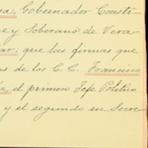 Gobernador Consti-
y Soberano de Vera-
que las firmas que
de los C. C. Francisco
el primero Jefe Político
y el segundo su Secre